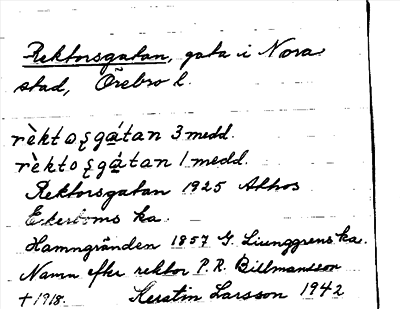 Rektorsgatan, gata i Nora
stad, Örebro l.
rèktoʂgátan 3 medd.
rèktoʂgátan 1 medd.
Rektorsgatan 1925 Althos
Ekerboms ka.
Hamngränden 1857 G. Liunggrens ka.
Namn efter rektor P. R. Billmansson
† 1918. Kerstin Larsson 1942